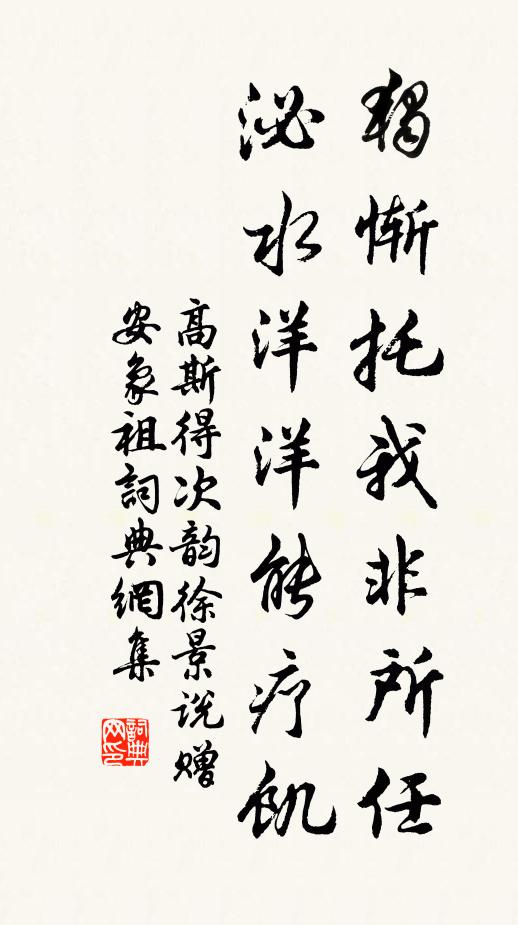 獨惭托我非所任
泌水洋洋能疗飢
高斯得次韵徐景说赠
安象祖詞典網集
詞典網印